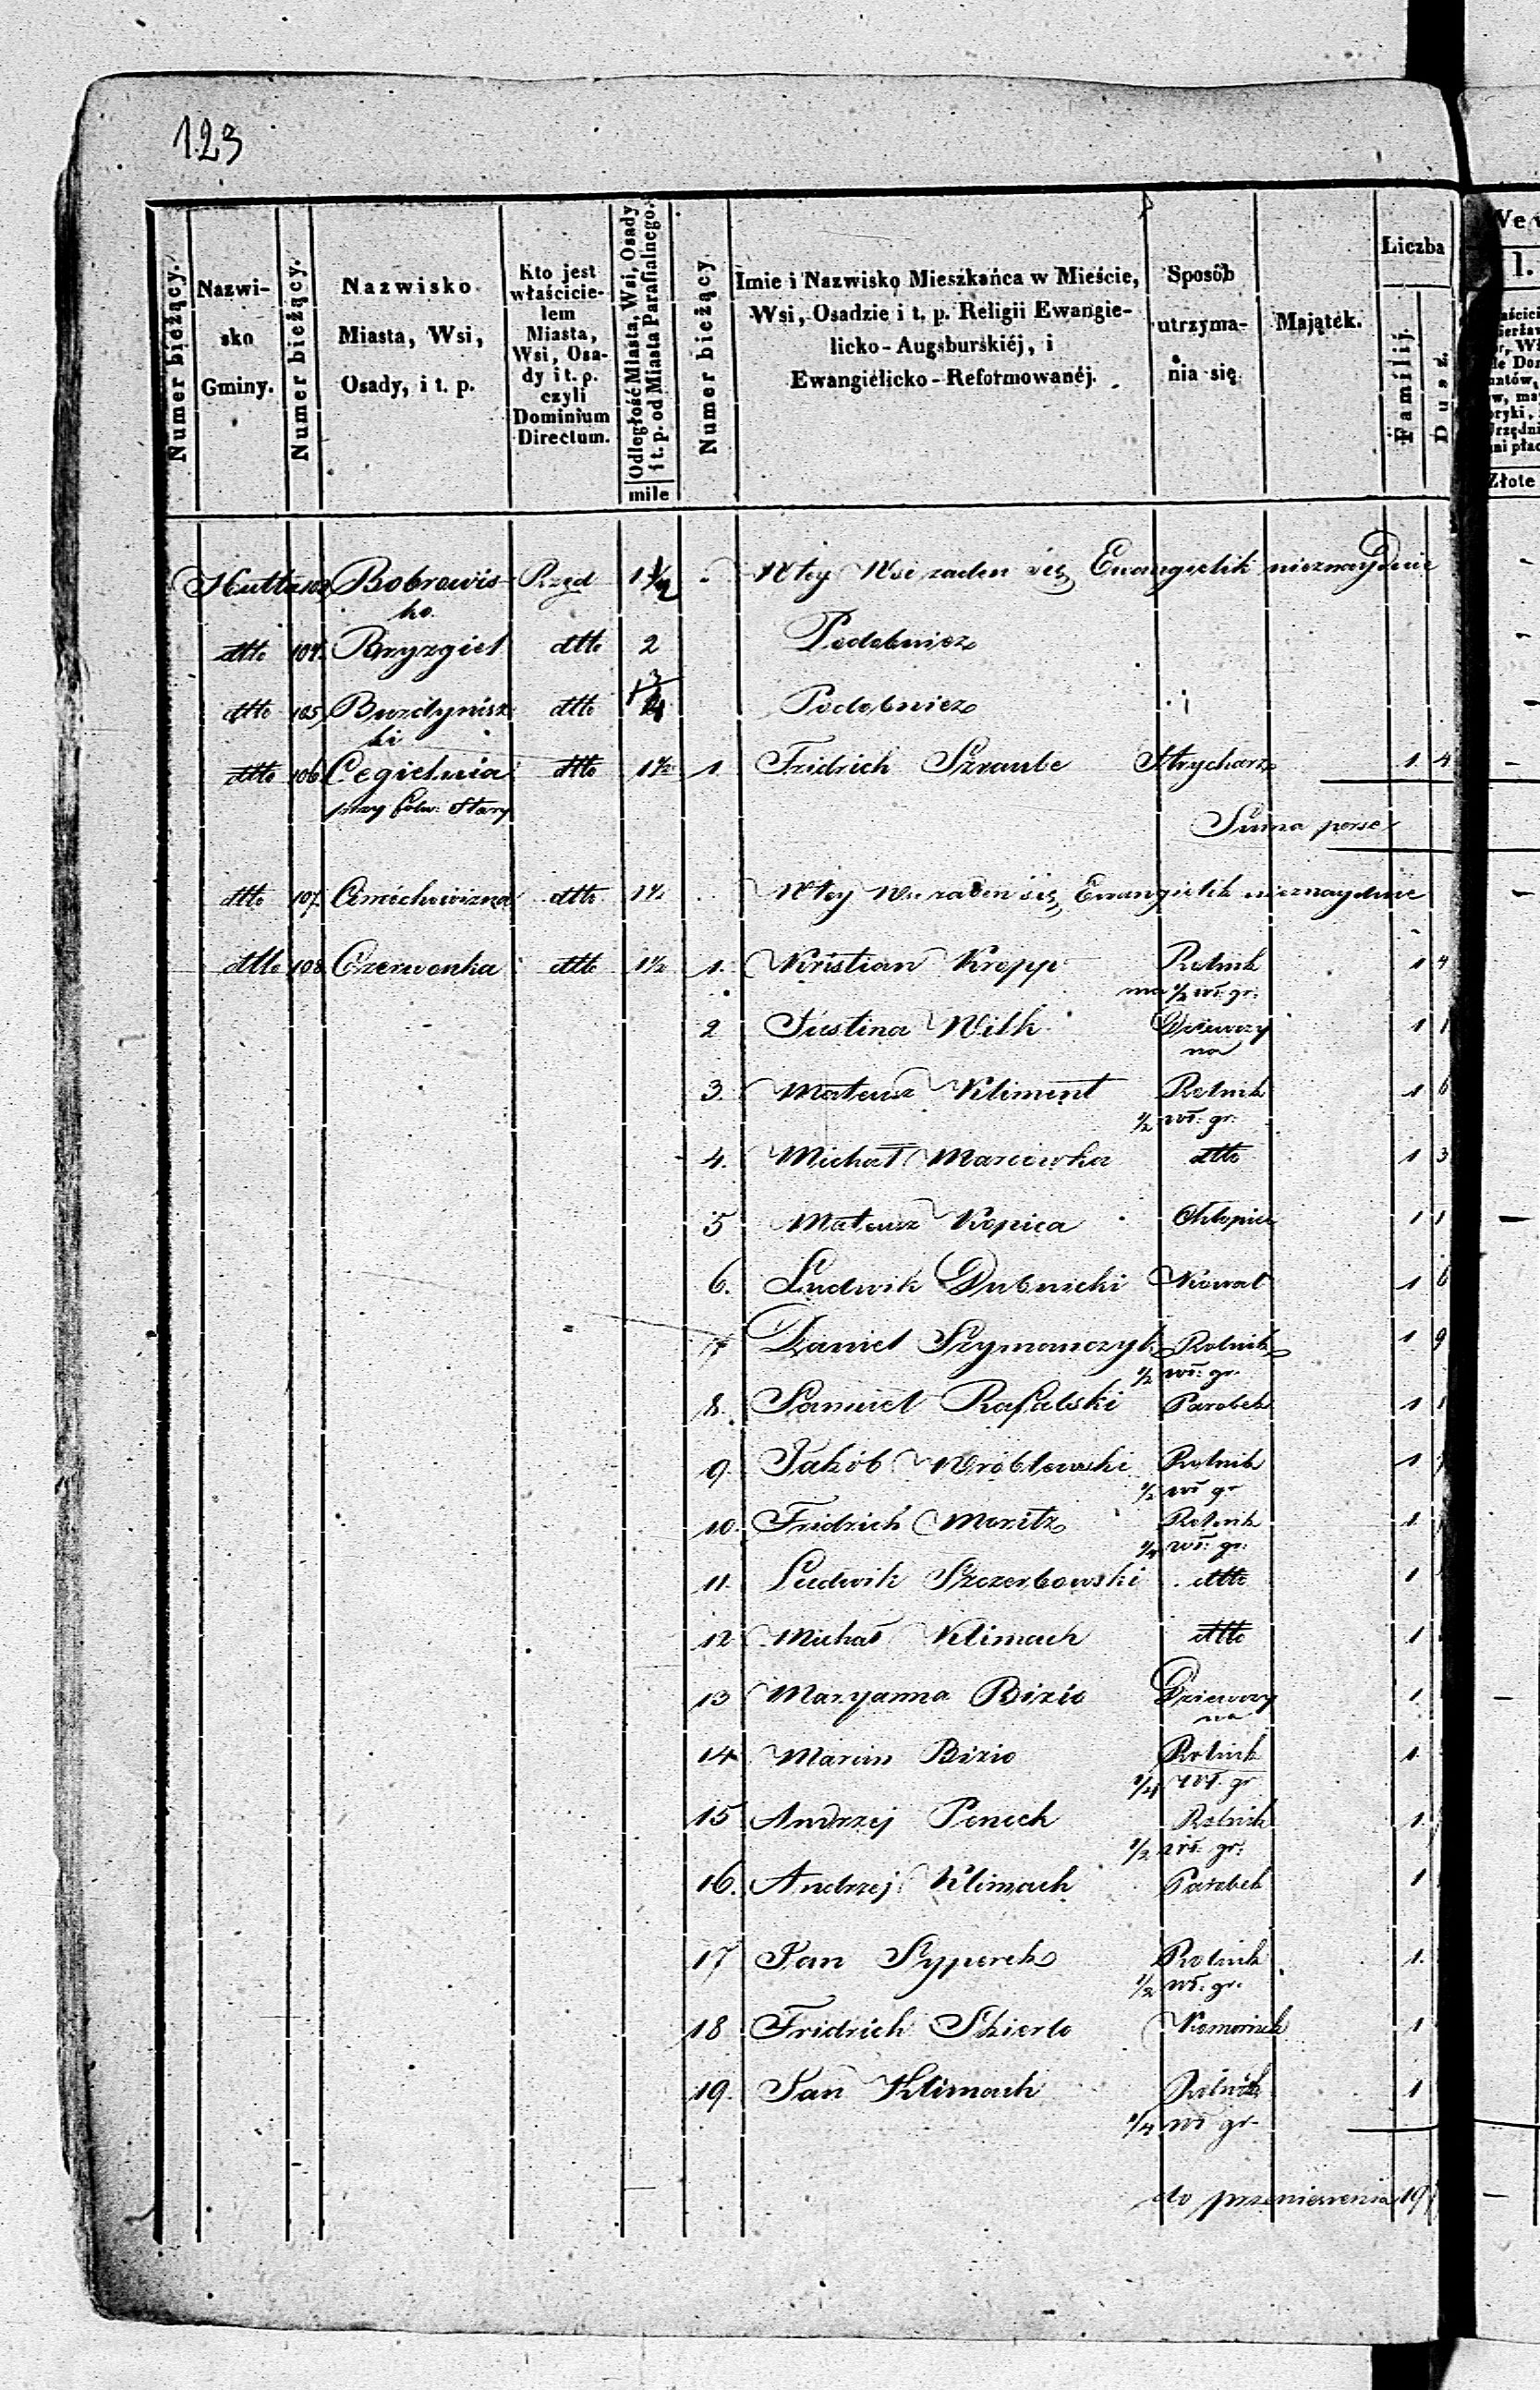 123
Numer bieżący.
Nazwi-
sko
Gminy.
Numer bieżący.
Nazwisko
Miasta, Wsi,
Osady, i t. p.
Kto jest
właścicie-
lem
Miasta,
Wsi, Osa-
dy i t. p.
czyli
Dominium
Directum.
Odległość Miasta, Wsi, Osady
i t. p. od Miasta Parafialnego.
mile
Numer bieżący
Imie i Nazwisko Mieszkańca w Mieście,
Wsi, Osadzie i t. p. Religii Ewangie-
licko-Augsburskiéj, i
Ewangiélicko-Reformowanéj.
Sposób
utrzyma-
nia się.
Majątek.
Liczba
Familij.
Dusz.
Hutta 103 Bobrowis- Rząd 1 1/2 Wtey Wsi zaden się Ewangielik nieznayduie
ko.
dtto 104. Bryzgiel dtto 2 Podobniez
dtto 105 Burdynisz dtto 1 3/4 Podobniez
ki
dtto 106 Cegielnia dtto 1 1/2 1 Fridrich Szraube Strycharz 1 4
przy folw: Stary
Suma perse
dtto 107. Cimochowizna dtto 1 1/2 Wtey Wsi zaden się Ewangielik nieznayduie
dtto 108 Czerwonka dtto 1 1/2 1. Kristian Kropp Rolnik 1 4
ma 1/2 wł. gr.
2 Justina Wilk Dziewczy 1 1
na
3. Mateusz Kliment Rolnik 1 6
1/2 wł. gr.
4. Michał Marcowka dtto 1 3
5 Mateusz Kopica Chłopiec 1 1
6. Ludwik Dubnicki Kowal 1 6
7 Daniel Szymonczyk Rolnik 1 9
1/2 wł. gr.
8. Samuel Rafalski Parobek 1 1
9. Jakób Wróblewski Rolnik 1
1/2 wł gr
10. Fridrich Moritz Rolnik 1.
1/4 wł: gr.
11. Ludwik Szczerbowski dtto 1
12 Michał Klimach dtto 1
13 Maryanna Bizio Dziewczy 1.
na
14 Marcin Bizio Rolnik 1.
1/4 wł. gr
15 Andrzej Penech Rolnik 1.
1/2 wł. gr:
16. Andrzej Klimach Parobek 1
17 Jan Syperek Rolnik 1.
1/2 wł. gr.
18 Fridrich Skierlo Komornik 1
19. Jan Klimach Rolnik 1
1/4 wł gr.
do przeniesienia 19